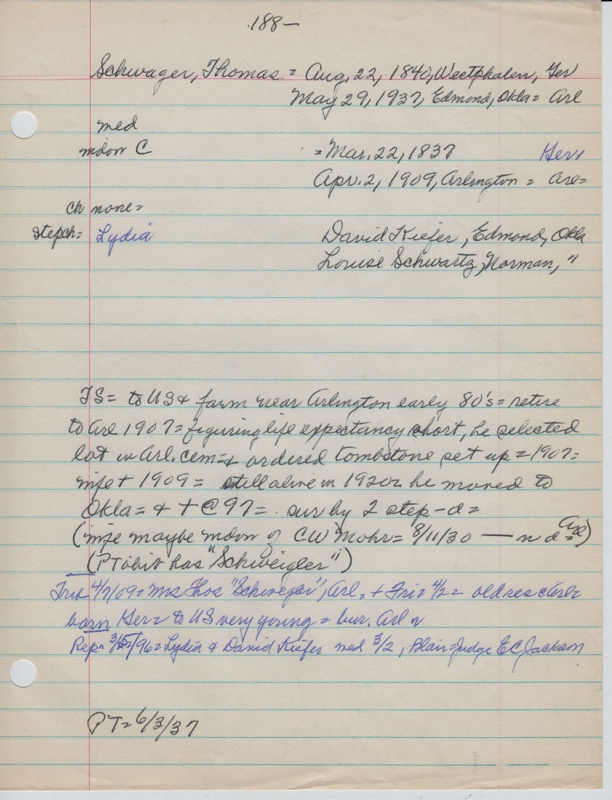 188-
Schwager, Thomas = Aug, 22, 1840, Westphalen, Ger
May 29, 1937, Edmond, Okla = Arl
med
mdon C = Mar. 22, 1837 Ger
Apr. 2, 1909, Arlington = Are=
ch none =
stepch = Lydia David Kiefer, Edmond, Okla
Louise Schwartz, Norman, "
TS = to US & farm near Arlington early 80's = retire
to Arl 1907 = figuring life expectancy short, he selected
lot in Arl. cem = & ordered tombstone set up = 1907 =
wife + 1909 = still alive in 1920 = he moved to
Okla = & + @ 97 = sur by 2 step-d =
(wife maybe mdon of CW Mohr = 8/11/30 — n d = Arl)
(PT obit has "Schweigler")
Trib 4/7/09 = Mrs Thos "Schwegler", Arl, = + Fri = 4/2 = old res c Arl =
born Ger = to US very young = bur. Arl
Rep = /96 = Lydia & David Kiefer med 3/2, Blair = Judge E C Jackson
PT = 6/3/37